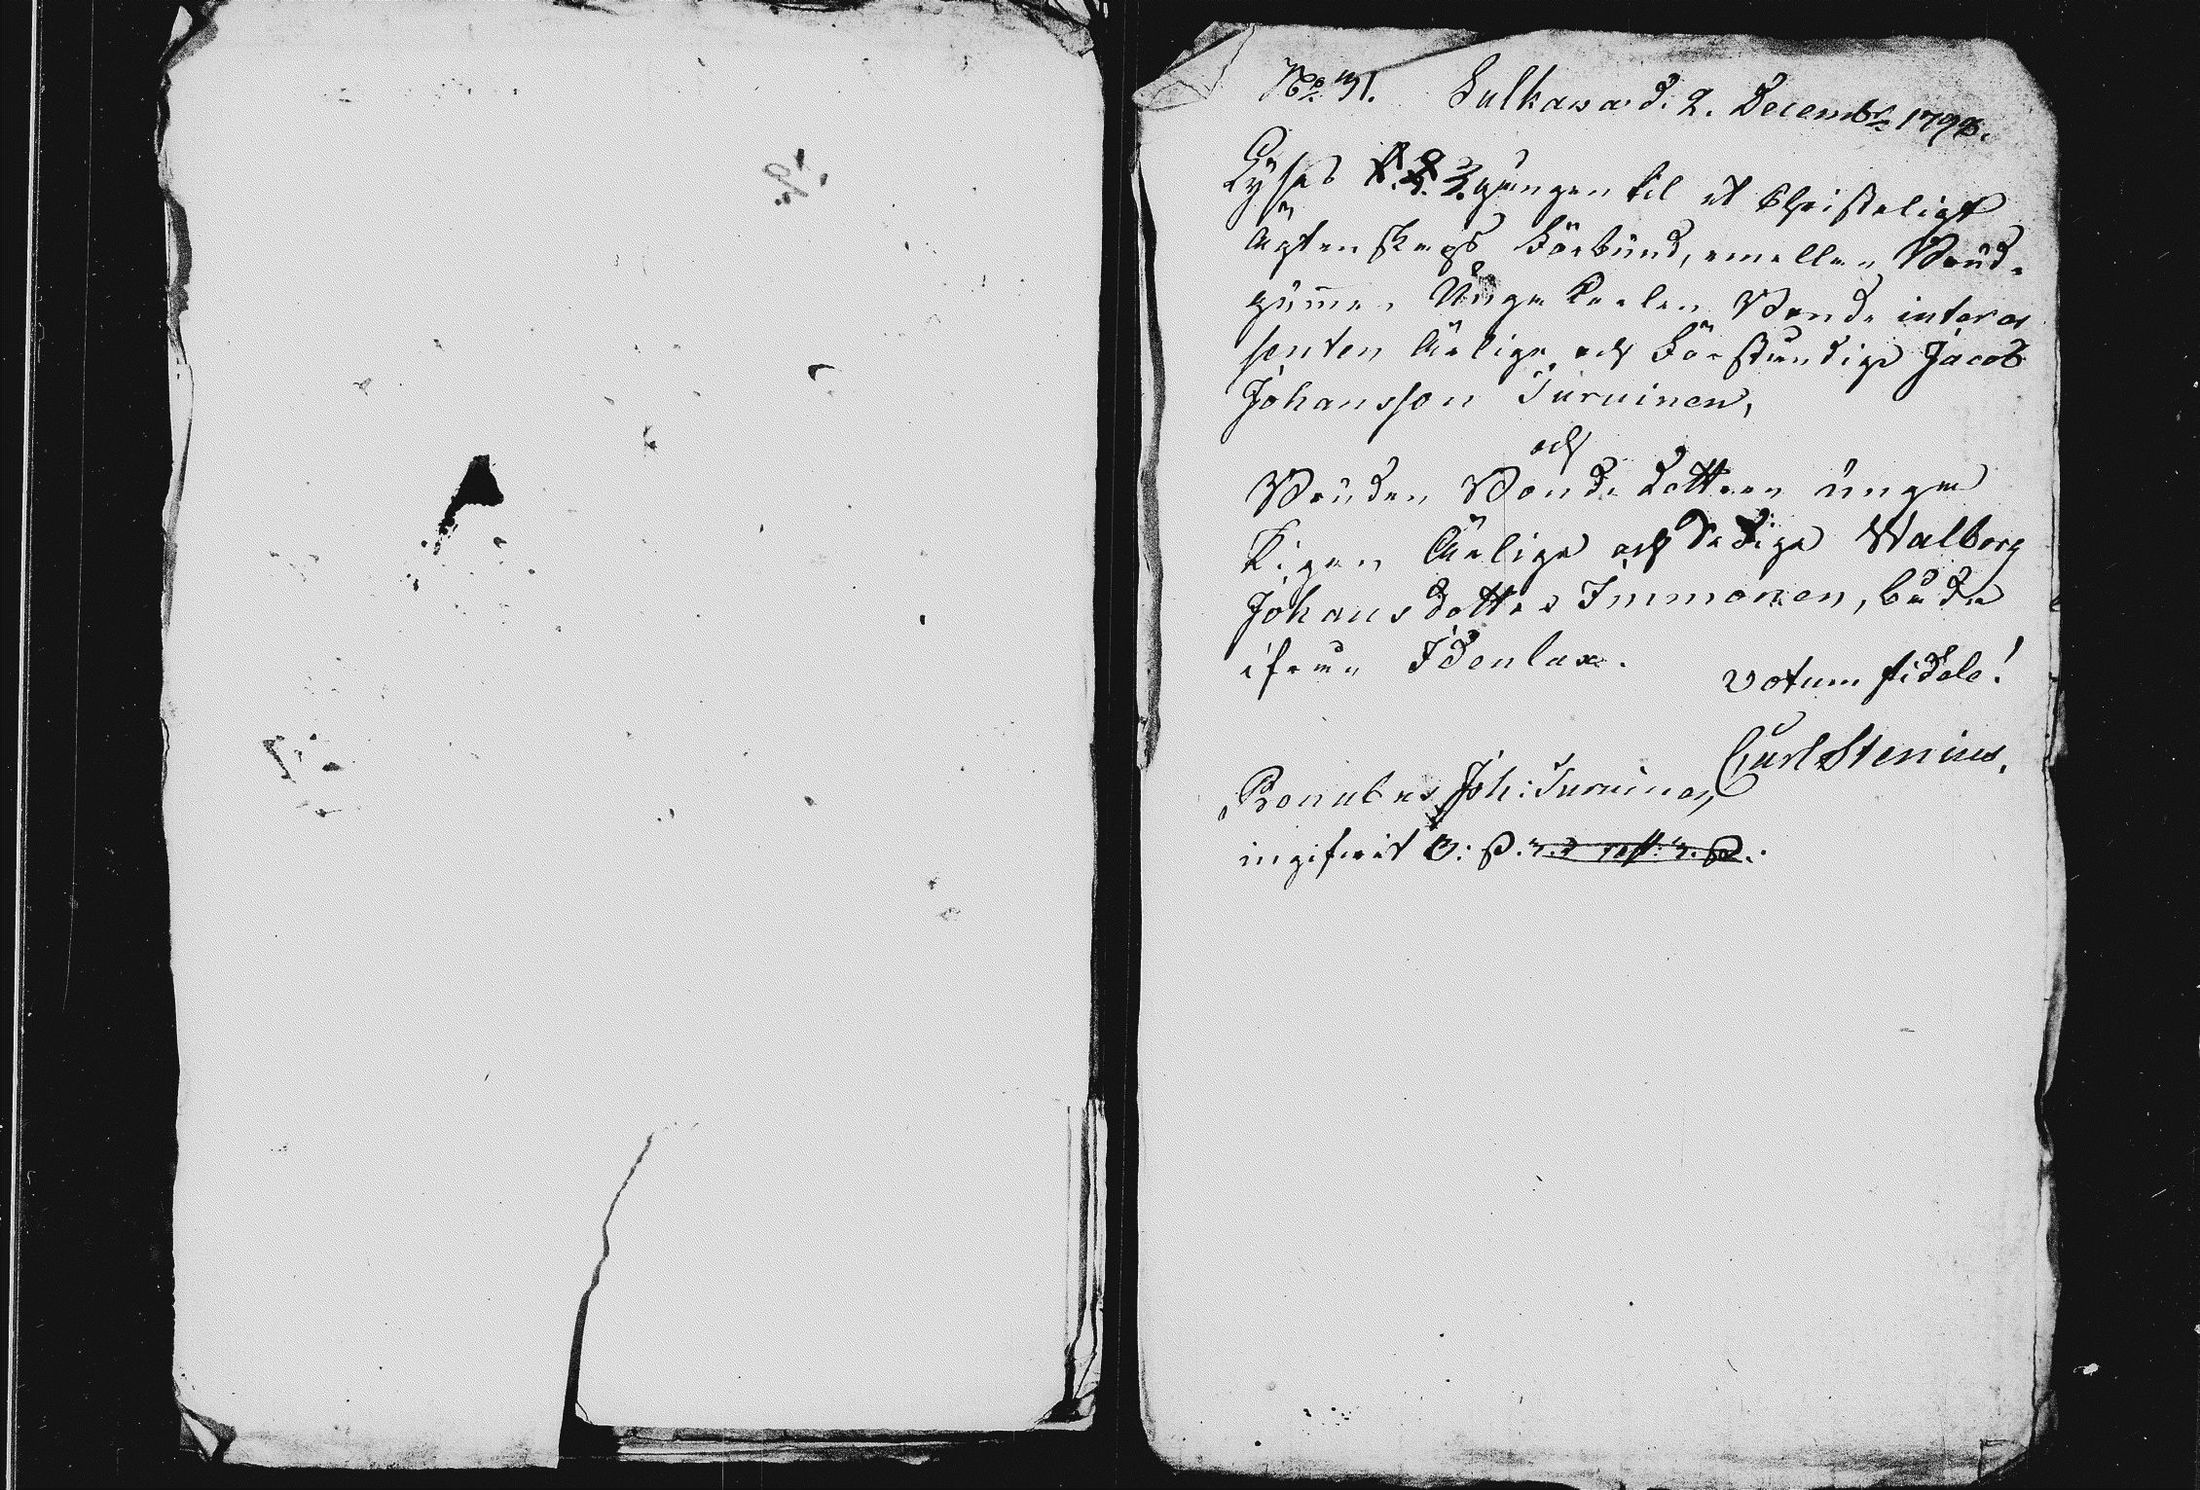 No 31. Sulkawa d. 2. Decembr 1798.
Lyses 1. 2. 3. gången til et Christeligt
Ägtenskaps Förbund, emellan Brud-
gumen Unga Karlen Bonde interes
senten Ärlige och Förståndige Jacob
Johansson Turuinen,
och
Bruden Bonde dottren unga
Pigan Ärliga och dediga Walborg
Johansdotter Immonen, båda
ifrån Idenlax.
votum fidele!
Carl Stenius.
Pronubus Joh: Turuinen
ingifwit 3: P.